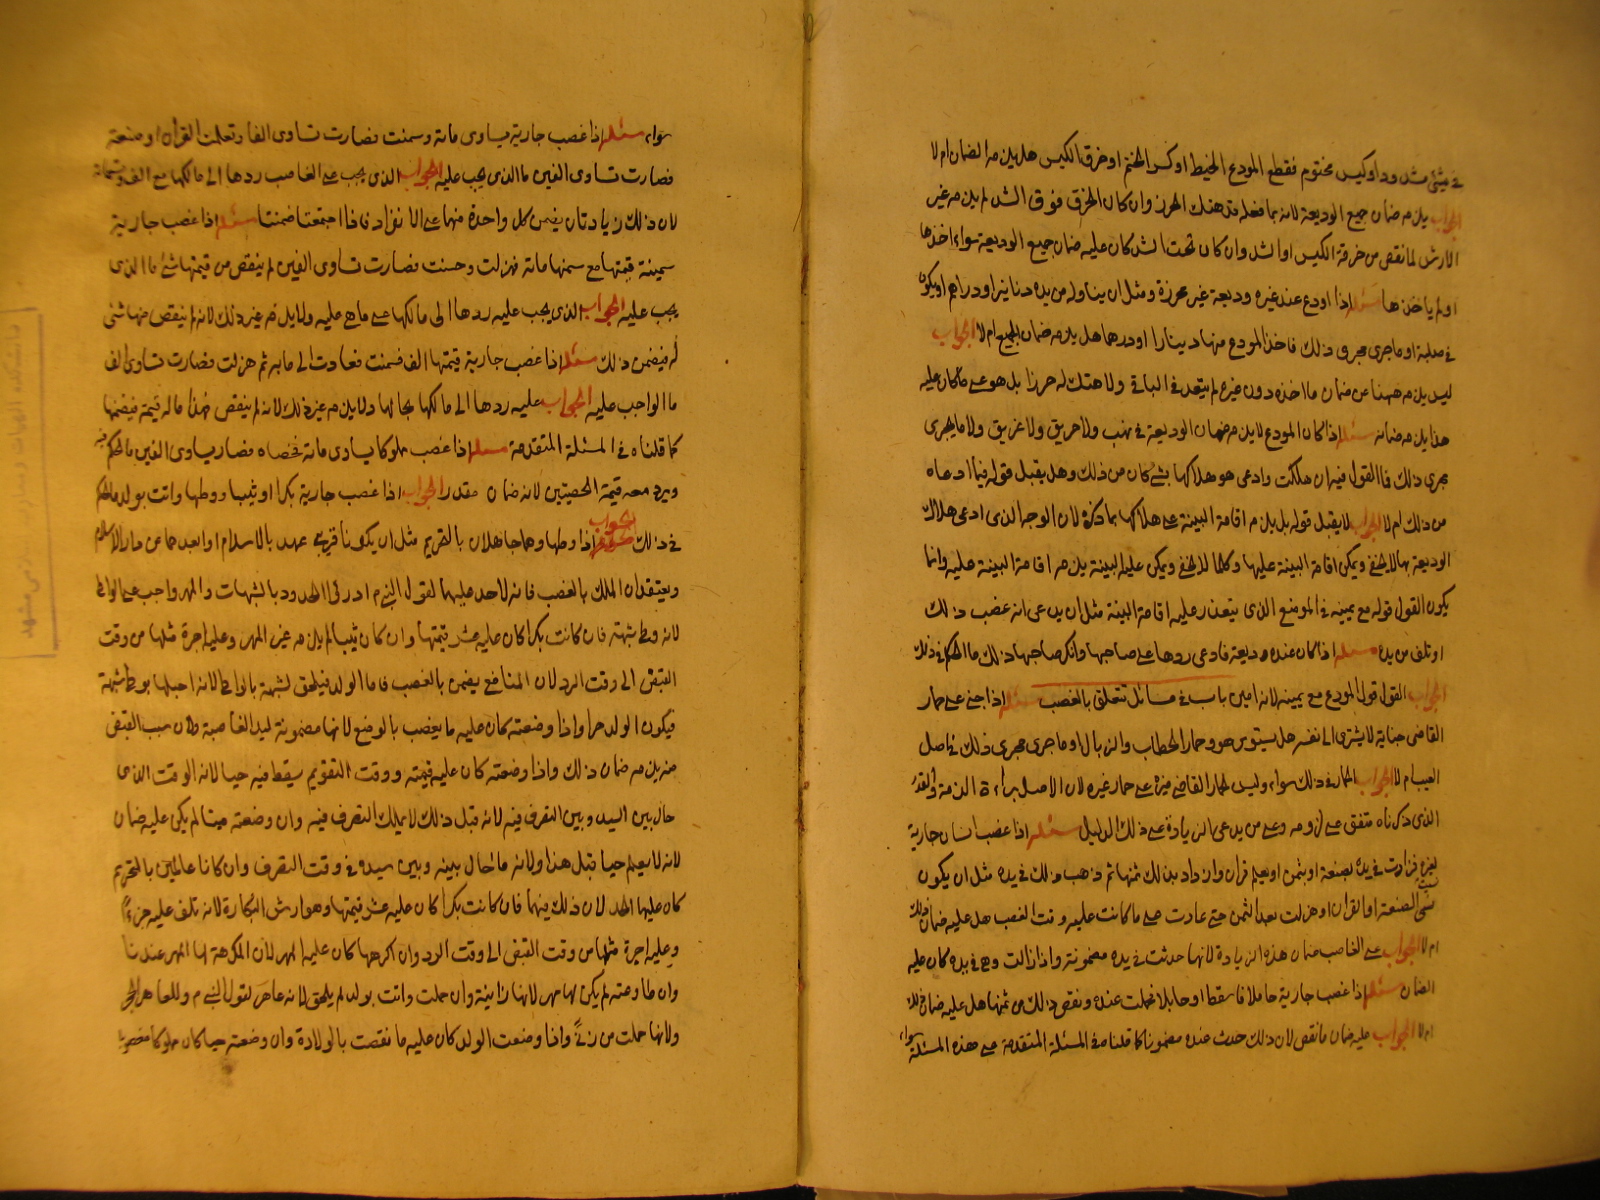 في شئ مشدود او كيس مختوم فقطع المودع الخيط او كسر الختم او خرق الكيس هل يلزمه الضمان ام لا
الجواب يلزمه ضمان جميع الوديعة لانه بما فعله قد هتك الحرز وان كان الخرق فوق الشد لم يلزمه غير
الارش لما نقص من خرقة الكيس او الشد وان كان تحت الشد كان عليه ضمان جميع الوديعة سواء اخذها
او لم ياخذها مسئلة اذا اودع عند غيره وديعة غير محرزة ومثل ان يناوله من يده دنانير او دراهم او يكون
في صلبة او ما جرى مجرى ذلك فاخذ المودع منها دينارا او درهما هل يلزمه ضمان الجميع ام لا الجواب
ليس يلزمه ههنا عن ضمان ما اخذه دون غيره لم يتعد في الباقي ولا هتك له حرزا بل هو على ما كان عليه
هذا يلزمه ضمانه مسئلة اذا كان المودع لا يلزمه ضمان الوديعة في نهب ولا حريق ولا غريق ولا ما يجرى
مجرى ذلك فالقول فيه ان هلكت وادعى هو هلاكها بشئ كان من ذلك وهل يقبل قوله فيما ادعاه
من ذلك ام لا الجواب لا يقبل قوله بل يلزم اقامة البينة على هلاكها بما ذكره لان الوجه الذى ادعى هلاك
الوديعة بها لا يخفى ويمكن اقامة البينة عليها وكلما لا يخفى ويمكن عليه البينة يلزمه اقامة البينة عليه وانما
يكون القول قوله مع يمينه في الموضع الذى يتعذر عليه اقامة البينة مثل ان يدعى انه غصب ذلك
او تلف من يده مسئلة اذا كان عنده وديعة فادعى ردها على صاحبها وانكر صاحبها ذلك ما الحكم في ذلك
الجواب القول قول المودع مع يمينه لانه امين باب في مسائل تتعلق بالغصب مسئلة اذا جنى على حمار
القاضى جناية لا يشترى الى نفسه هل يستوى هو وحمار الحطاب والزبال او ما جرى مجرى ذلك في اصل
العيب ام لا الجواب الحال في ذلك سواء وليس لحمار القاضى مزية على حمار غيره لان الاصل براءة الذمة والقدر
الذى ذكرناه متفق على لزومه وعلى من يدعى الزيادة على ذلك الدليل مسئلة اذا غصب انسان جارية
لغيره فزادت في يده بصنعة او بثمن او تعلم قران وازداد بذلك ثمنها ثم ذهب ذلك في يده مثل ان يكون
نسيت الصنعة او القران او هزلت بعد الثمن حتى عادت على ما كانت عليه وقت الغصب هل عليه ضمان ذلك
ام لا الجواب على الغاصب ضمان هذه الزيادة لانها حدثت في يده مضمونة واذا زالت وهى في يده كان عليه
الضمان مسئلة اذا غصب جارية حاملا فاسقط او حايلا فحملت عنده ونقص ذلك من ثمنها هل عليه ضمان ذلك
ام لا الجواب عليه ضمان ما نقص لان ذلك حدث عنده مضمونا كما قلناه في المسئلة المتقدمة على هذه المسئلة
سواء
سواء مسئلة اذا غصب جارية يساوى مائة وسمنت فصارت تساوى الفا وتعلمت القران او صنعة
فصارت تساوى الفين ما الذى يجب عليه الجواب الذى يجب على الغاصب ردها الى مالكها مع الف وتسعمائة
لان ذلك زيادتان يضمن كل واحدة منهما على الانفراد فاذا اجتمعتا ضمنتا مسئلة اذا غصب جارية
سمينة قيمتها مع سمنها مائة فهزلت وحسنت فصارت تساوى الفين لم ينقص من قيمتها شئ ما الذى
يجب عليه الجواب الذى يجب عليه ردها الى مالكها على ما هى عليه ولا يلزمه غير ذلك لانه لم ينقص منها شئ
له فيضمن ذلك مسئلة اذا غصب جارية قيمتها الف فسمنت فعادت الى ما به ثم هزلت فصارت تساوى الف
ما الواجب عليه الجواب عليه ردها الى مالكها بحالها ولا يلزمه غير ذلك لانه لم ينقص منها ما له قيمة فيضمنها
كما قلناه في المسئلة المتقدمة مسئلة اذا غصب مملوكا يساوى مائة فخصاه فصار يساوى الفين ما الحكم فيه
ويرد معه قيمة الخصيتين لانه ضمان مقدر الجواب اذا غصب جارية بكرا او ثيبا ووطها واتت بولد ما الحكم
في ذلك الجواب اذا وطها وهما جاهلان بالتحريم مثل ان يكونا قريبى عهد بالاسلام او ابعدهما عن دار الاسلام
ويعتقدان الملك بالغصب فانه لا حد عليهما لقول النبى م ادرئوا الحدود بالشبهات والمهر واجب على الواطى
لانه وطى شبهة فان كانت بكرا كان عليه عشر قيمتها وان كان ثيبا لم يلزمه غير المهر وعليه اجرة مثلها من وقت
القبض الى وقت الرد لان المنافع يضمن بالغصب فاما الولد فيلحق نسبه بالواطى لانه احبلها بوطى شبهة
فيكون الولد حرا واذا وضعته كان عليه ما ينقص بالوضع لانها مضمونة ليد الغاصبة ولان سبب القبض
منه يلزمه ضمان ذلك واذا وضعته كان عليه قيمته ووقت التقويم سقط فيه حيا لانه الوقت الذى
حال بين السيد وبين التصرف فيه لانه قبل ذلك لا يملك التصرف فيه وان وضعته ميتا لم يكن عليه ضمان
لانه لا يعلم حيا قبل هذا ولانه ما حال بينه وبين سيده في وقت التصرف وان كانا عالمين بالتحريم
كان عليهما الحد لان ذلك فيهما فان كانت بكرا كان عليه عشر قيمتها وهو ارش البكارة لانه تلف عليه جزءا
وعليه اجرة مثلها من وقت القبض الى وقت الرد وان اكرهها كان عليه المهر لان المكرهة لها المهر عندنا
وان طاوعته لم يكن لها مهر لانها زانية وان حملت واتت بولد لم يلحق لانه عاهر لقول النبى م وللعاهر الحجر
ولانها حملت من زنى واذا وضعت الولد كان عليه ما نقصت بالولادة وان وضعته حيا كان مملوكا مغصوبا
دانشكده الهيات و معارف اسلامى مشهد